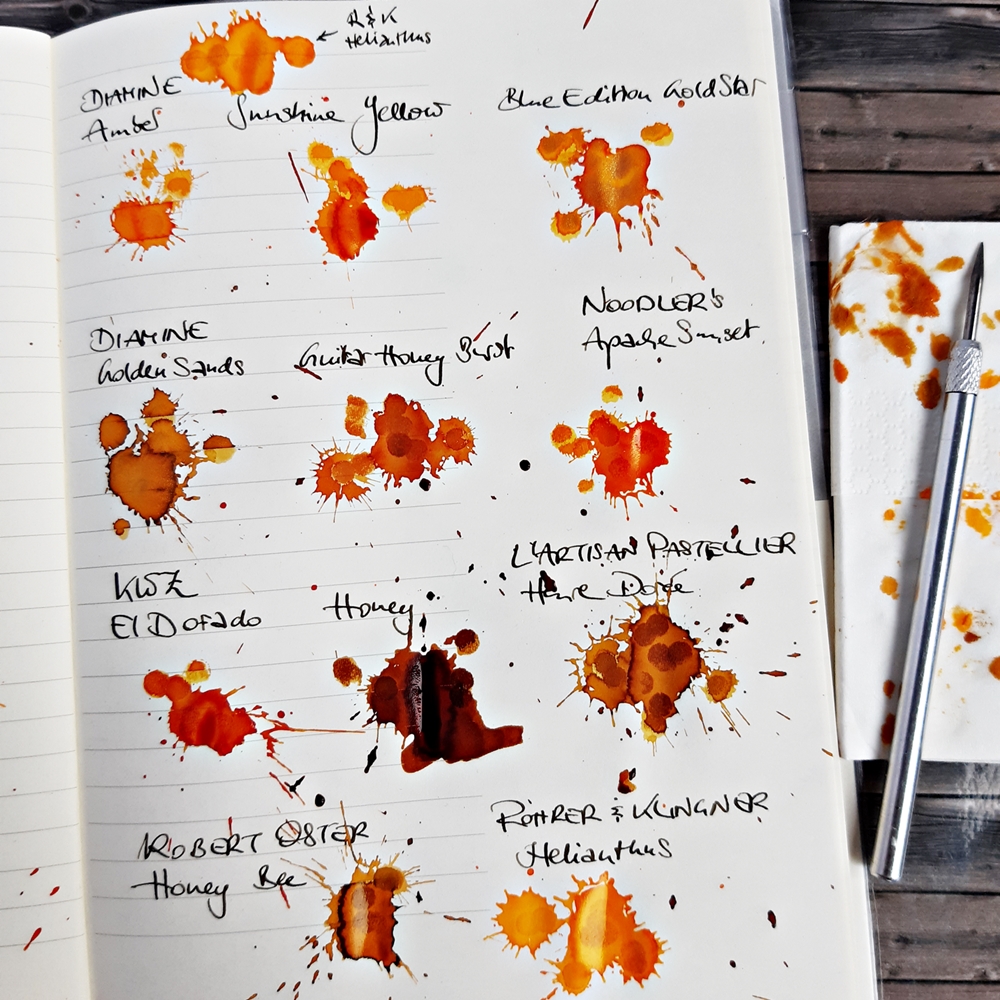 R & K
Helianthus
DIAMINE
Amber
Sunshine Yellow
Blue Edition Gold Star
DIAMINE
Golden Sands
Guitar Honey Burst
NOODLER'S
Apache Sunset
KWZ
El Dorado
Honey
L'ARTISAN PASTELLIER
Heure Dorée
ROBERT OSTER
Honey Bee
ROHRER & KLINGNER
Helianthus